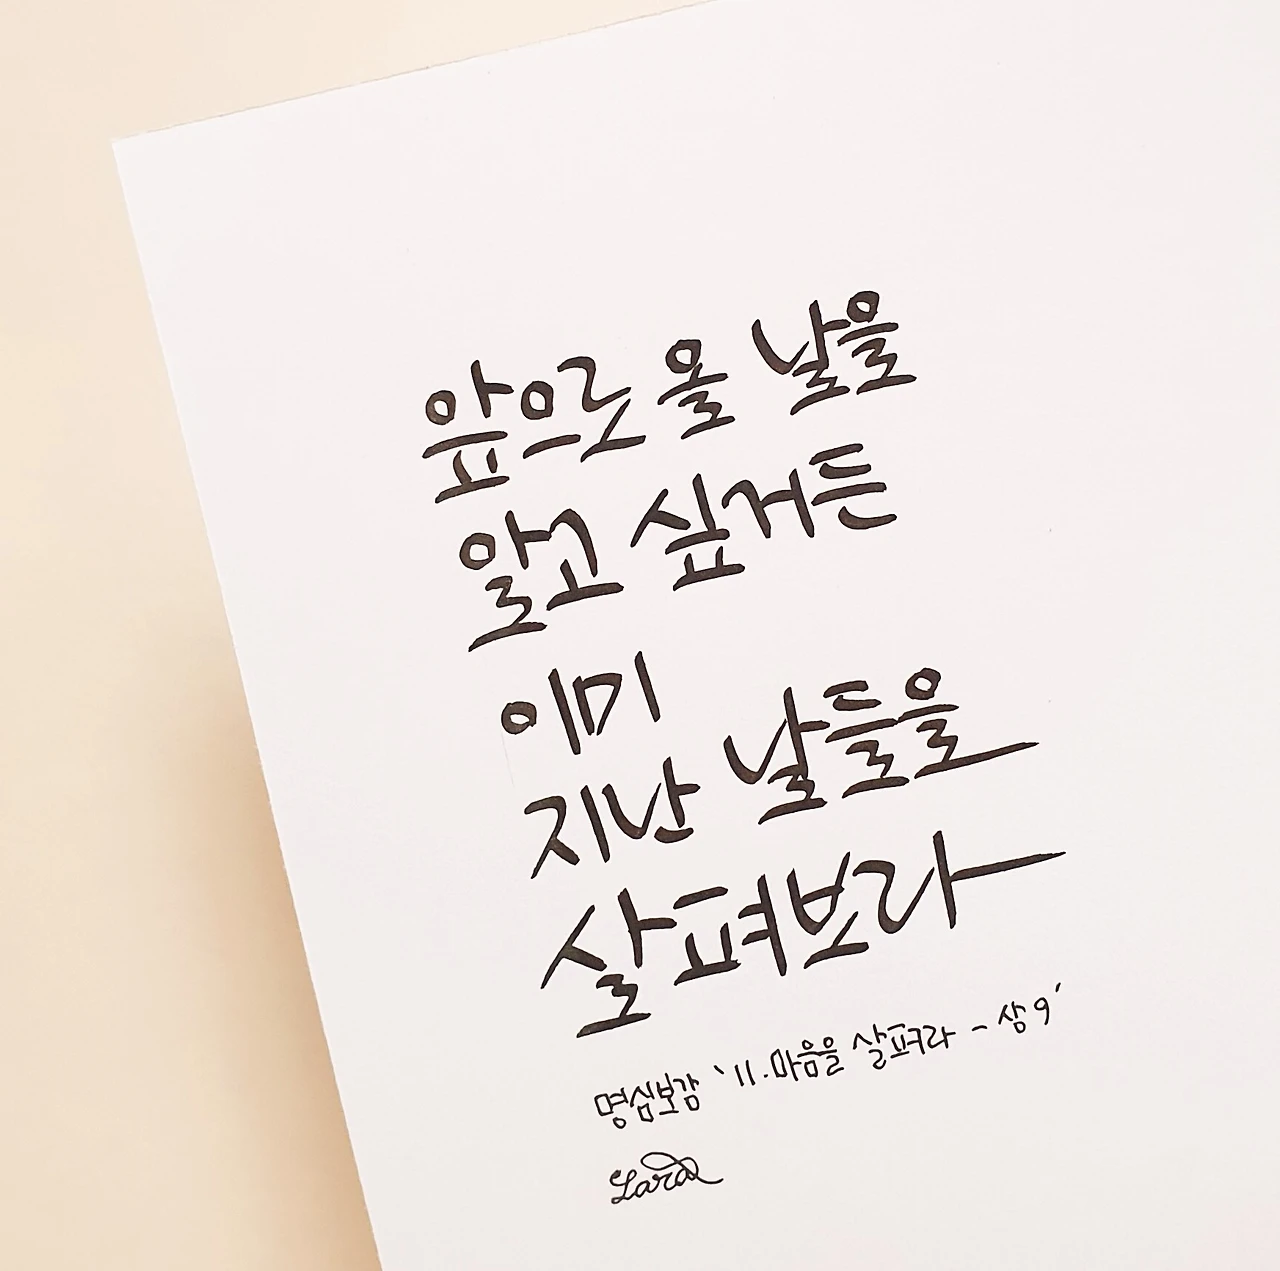 앞으로 올 날을
알고 싶거든
이미
지난 날들을
살펴보라
명심보감 '11.마음을 살펴라 - 상9'
Lara